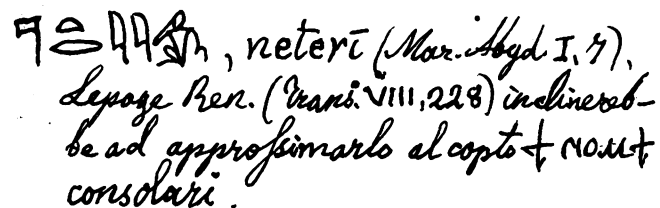 , neterī (Mar. Abyd. I, 7),
Lepage Ren. (Trans. VIII, 228) inclinereb-
be ad approſsimarlo al copto ϯ ⲛⲟⲙϯ
consolari.